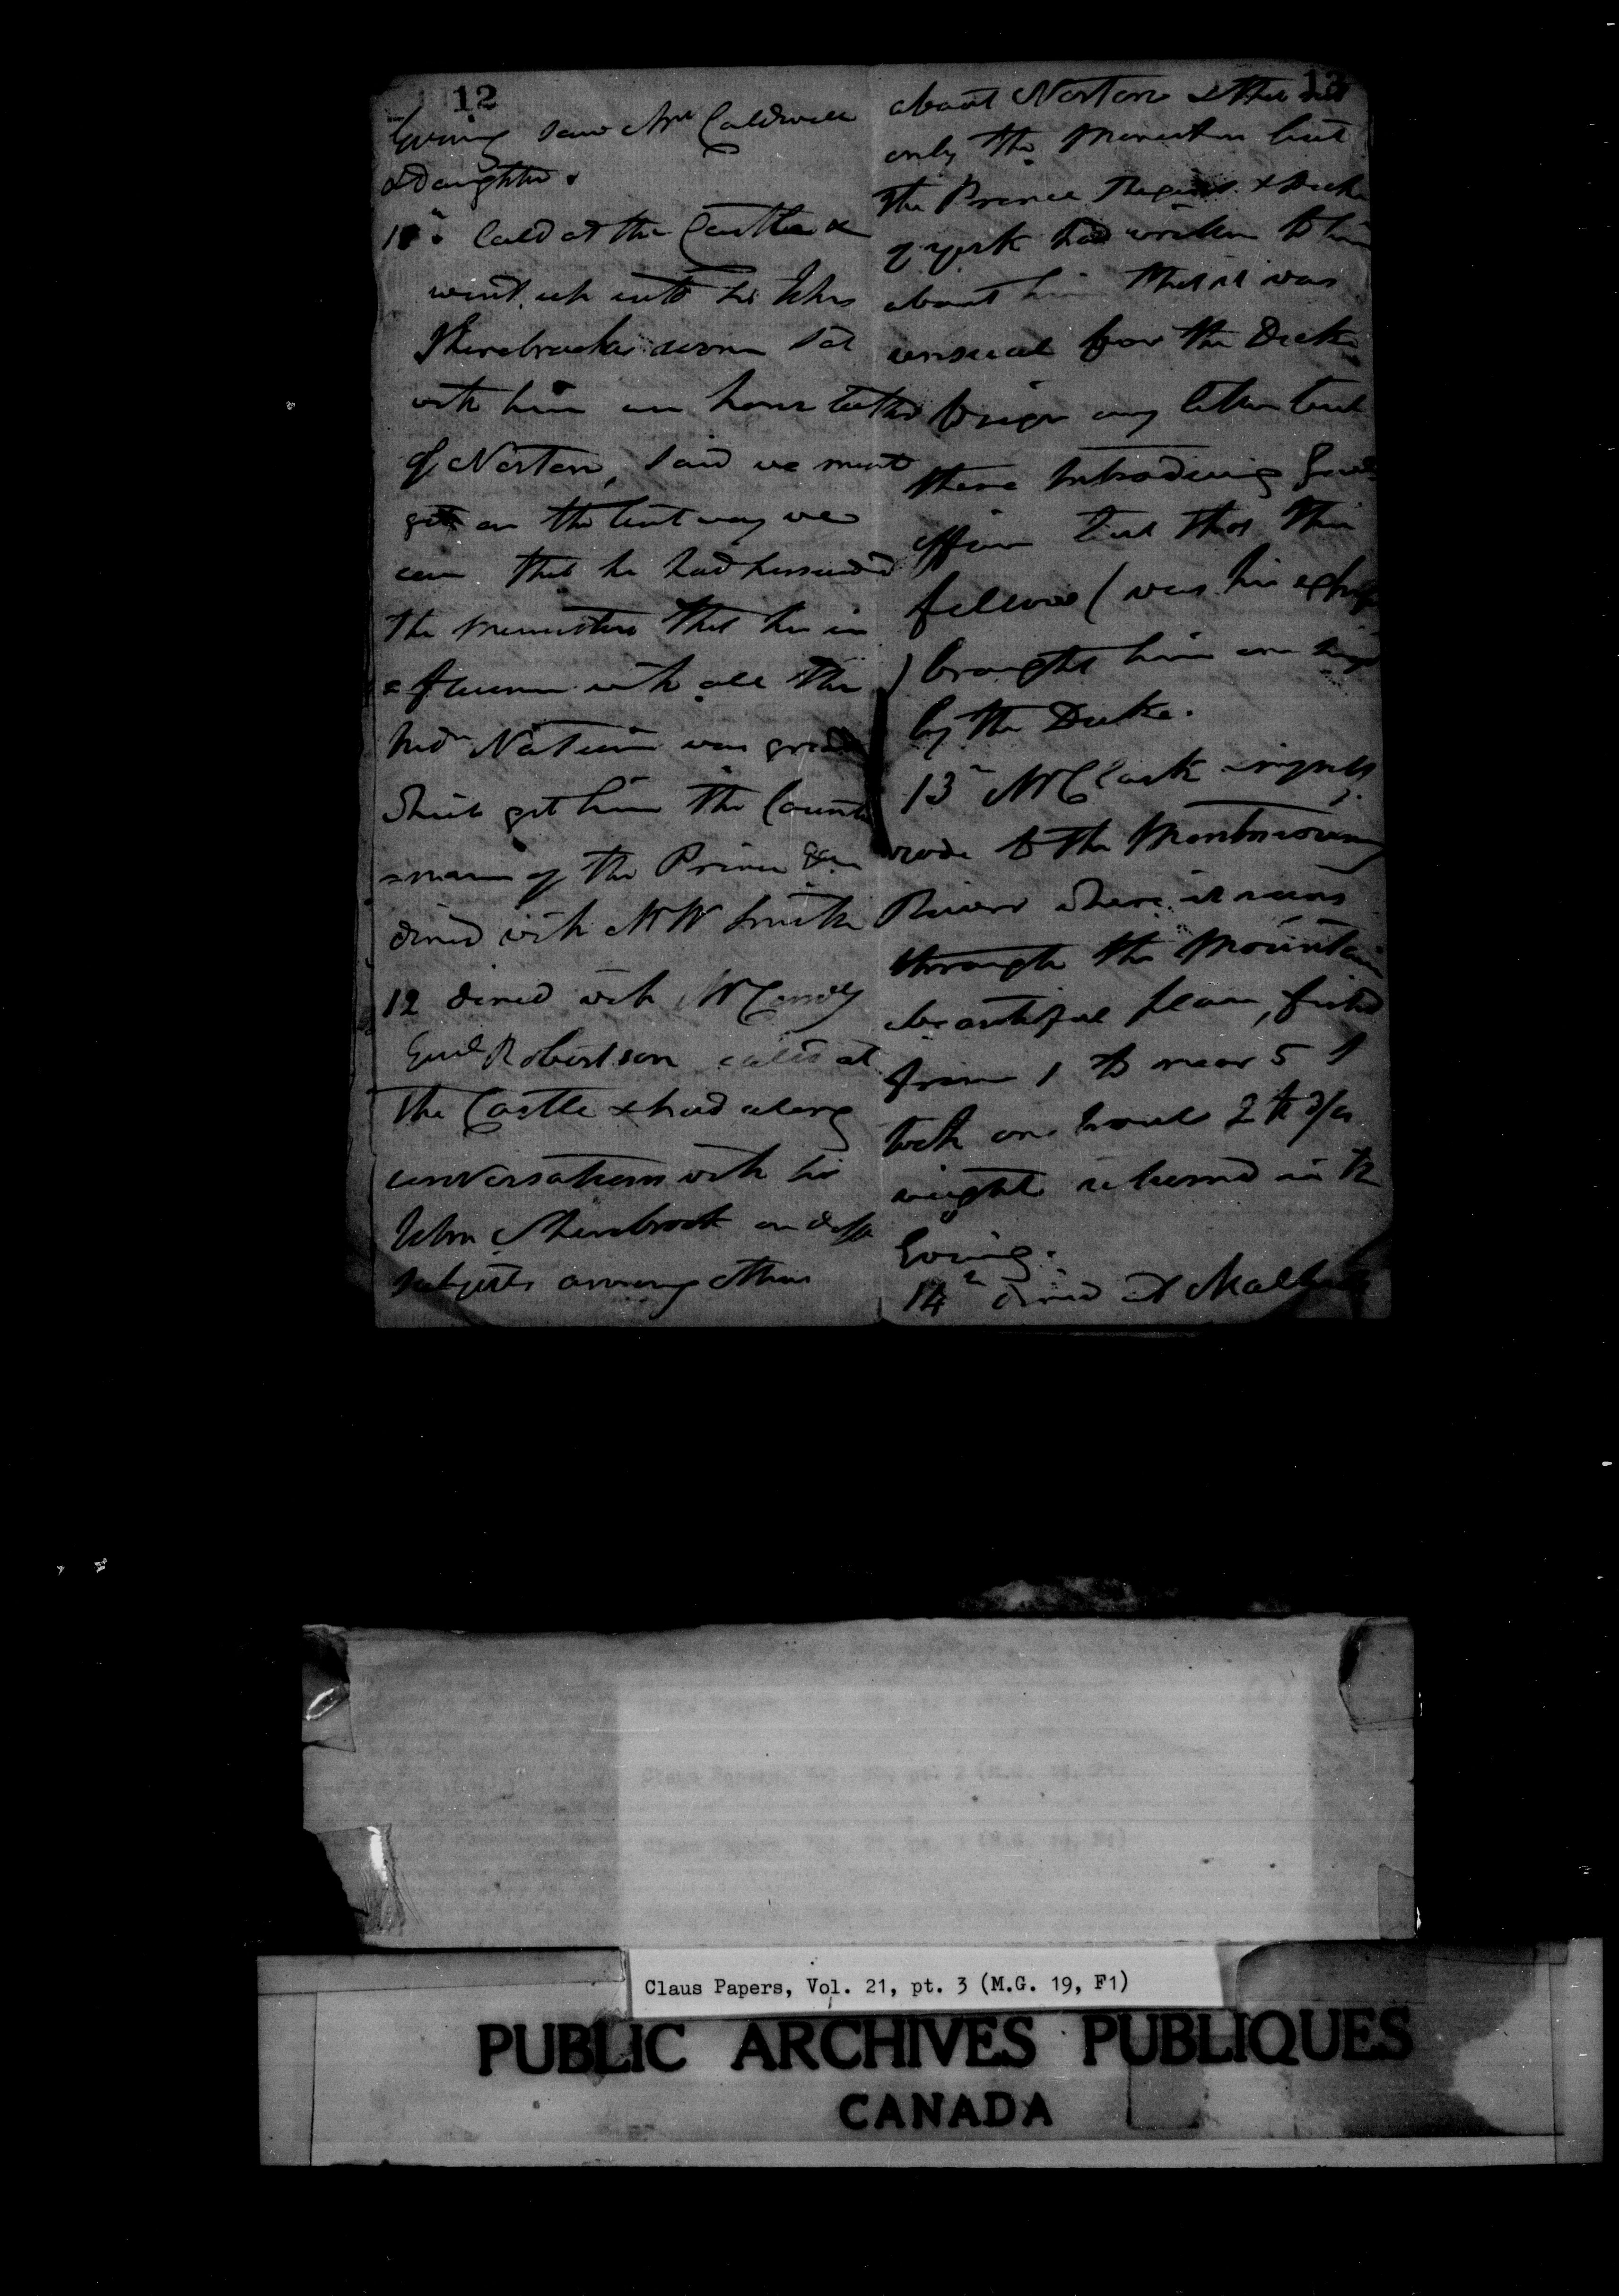 12
Evening saw Mrs Caldwell
& Daughter.
Calld at the Castle &
went up into Sir Johns
Sherebrooke's room sat
with him an hour talked
of Norton, said we must
get on the best way we
can that he had persuaded
the ministers that his in
=fluence with all the
Indn Nations was great
which got him the Counte
=nance of the Prince &c
dined with Mr W Smith
12 dined with Mr
Genl Robertson called at
the Castle & had a long
conversation with Sir
John Sherebrook on diffr
subjects among others
13
about Norton & that not
only the Minister but
the Prince Regent & Duke
of York had written to him
about him that it was
unusual for the Duke
to sign any letter but
those Introducing Genl
officers but that this
fellow (was his
) brought him one signd
by the Duke.
13th Mr Clark & myself
rode to the Montmorency
River where it runs
through the Mountain
beautiful place, fished
from 1 to near 5 I
took one trout 2 lb
weight returned in the
Evening.
14th dined at
Claus Papers, Vol. 21, pt. 3 (M.G. 19, F1)
PUBLIC ARCHIVES PUBLIQUES
CANADA